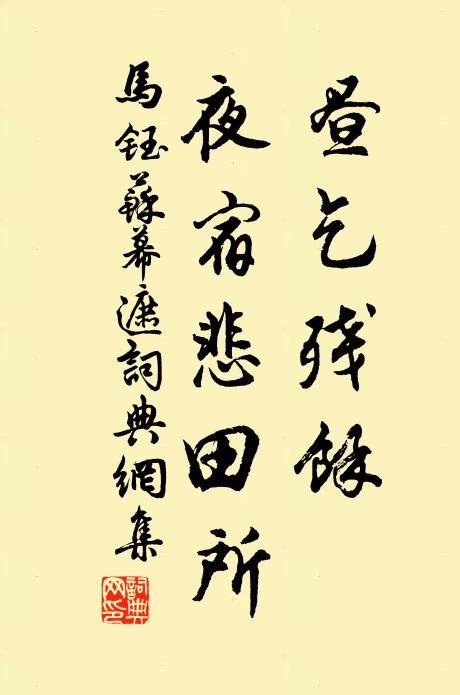 昼乞残餘
夜宿悲田所
馬鈺蘇幕遮詞典網集
詞典網印